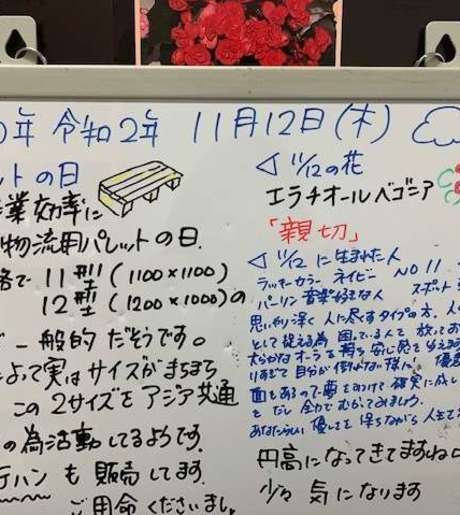 0年 令和2年 11月12日(木)
ットの日
業効率に
物流用パレットの日.
格で 11型(1100×1100)
12型(1200×1000)の
一般的だそうです。
よって実はサイズがまちまち
この2サイズをアジア共通
の為活動してるようです.
テハン も 販売してます.
ご用命くださいまし。
◁ 11/12の花
エラチオールベゴニア
「親切」
◁ 11/12 に生まれた人
ラッキーカラー ネイビー NO 11 スポット
パーリン 音楽好きな人
思いやり深く 人に尽すタイプの方。人
として捉える為 困っている人を 放ってお
大らかなオーラを 持ち 安心感を 与えます
りすぎて 自分が 倒れない様に。優
面もあるので 夢をめがけて 確実に 成し
と だし 全力で むかってみましょう.
あなたらしい 優しさを 保ちながら 人生を
円高になってきてますね
少々 気になります